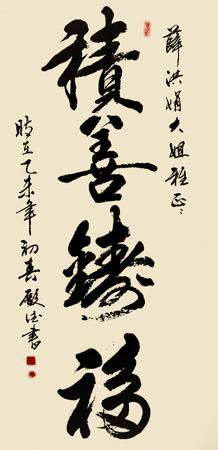 薛洪娟大姐雅正
積善鑄福
時在乙未年初春殿佳書